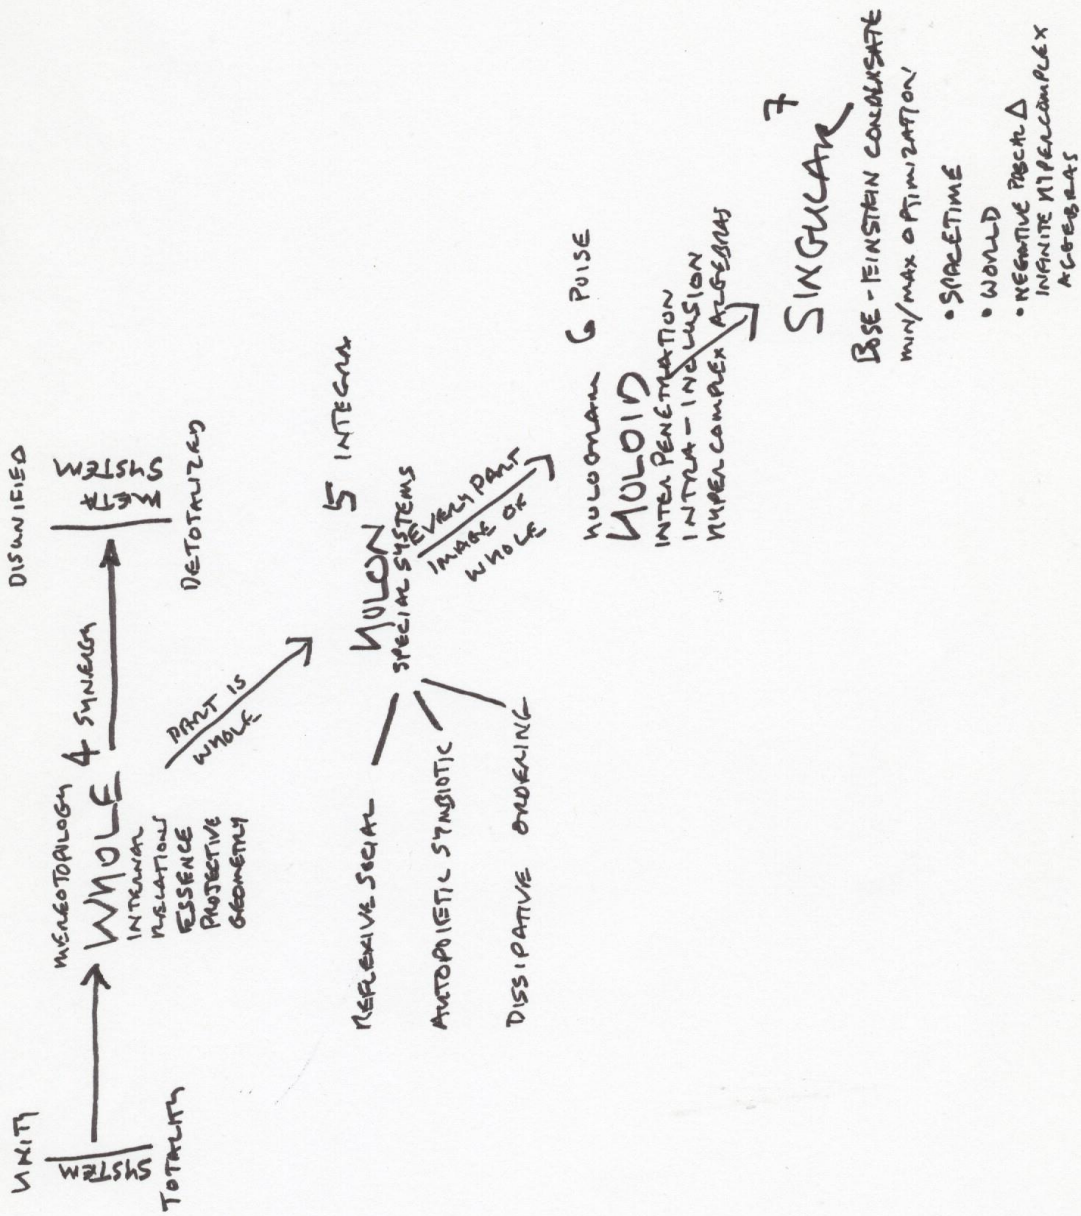 UNITY
SYSTEM
TOTALITY
MEREOTOPILOGY
WHOLE 4 SYNERGY
INTERNAL
RELATIONS
ESSENCE
PROJECTIVE
GEOMETRY
DISUNIFIED
META
SYSTEM
DETOTALIZED
PART IS
WHOLE
HOLON 5 INTEGRA
SPECIAL SYSTEMS
REFLEXIVE SOCIAL
AUTOPOIETIC SYMBIOTIC
DISSIPATIVE ORDERING
EVERY PART
IMAGE OF
WHOLE
HOLOGRAM 6 POISE
HOLOID
INTERPENETRATION
INTRA-INCLUSION
HYPERCOMPLEX ALGEBRAS
SINGULAR 7
BOSE-EINSTEIN CONDENSATE
MIN/MAX OPTIMIZATION
• SPACETIME
• WORLD
• NEGATIVE PASCAL Δ
INFINITE HYPERCOMPLEX
ALGEBRAS